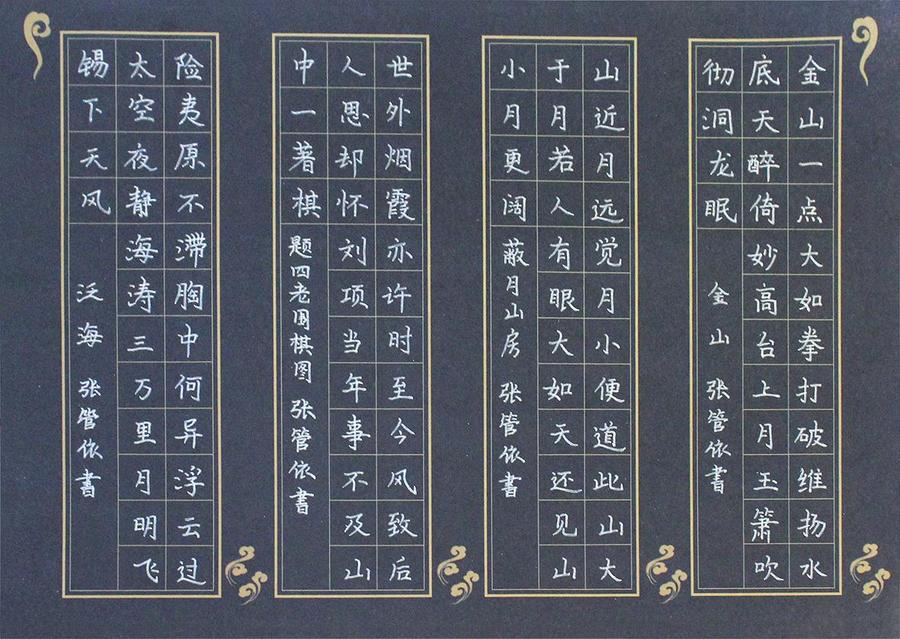 金山一点大如拳打破维扬水
底天醉倚妙高台上月玉箫吹
彻洞龙眠 金山 张管依書
山近月远觉月小便道此山大
于月若人有眼大如天还见山
小月更阔 蔽月山房 张管依書
世外烟霞亦许时至今风致后
人思却怀刘项当年事不及山
中一著棋 题四老围棋图 张管依書
险夷原不滞胸中何异浮云过
太空夜静海涛三万里月明飞
锡下天风 泛海 张管依書